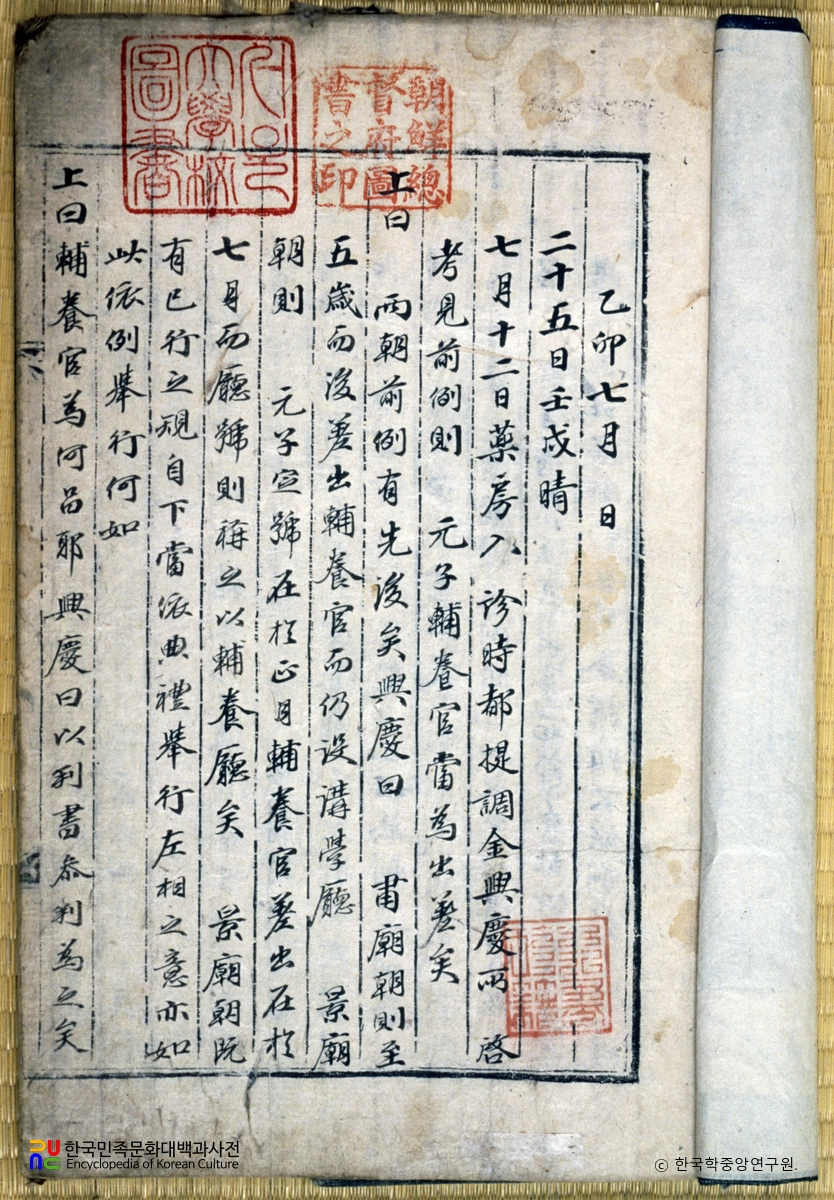 乙卯七月 日
二十五日壬戌晴
七月十二日藥房入 診時都提調金興慶所 啓
考見前例則 元子輔養官當爲出差矣
上曰 兩朝前例有先後矣興慶曰 肅廟朝則至
五歲而後差出輔養官而仍設講學廳 景廟
朝則 元子定號在於正月輔養官差出在於
七月而廳號則稱之以輔養廳矣 景廟朝旣
有已行之規自下當依典禮擧行左相之意亦如
此依例擧行何如
上曰輔養官爲何品耶興慶曰以判書參判爲之矣
朝鮮總
督府圖
書之印
서울
大學校
圖書
한국민족문화대백과사전
Encyclopedia of Korean Culture
© 한국학중앙연구원.